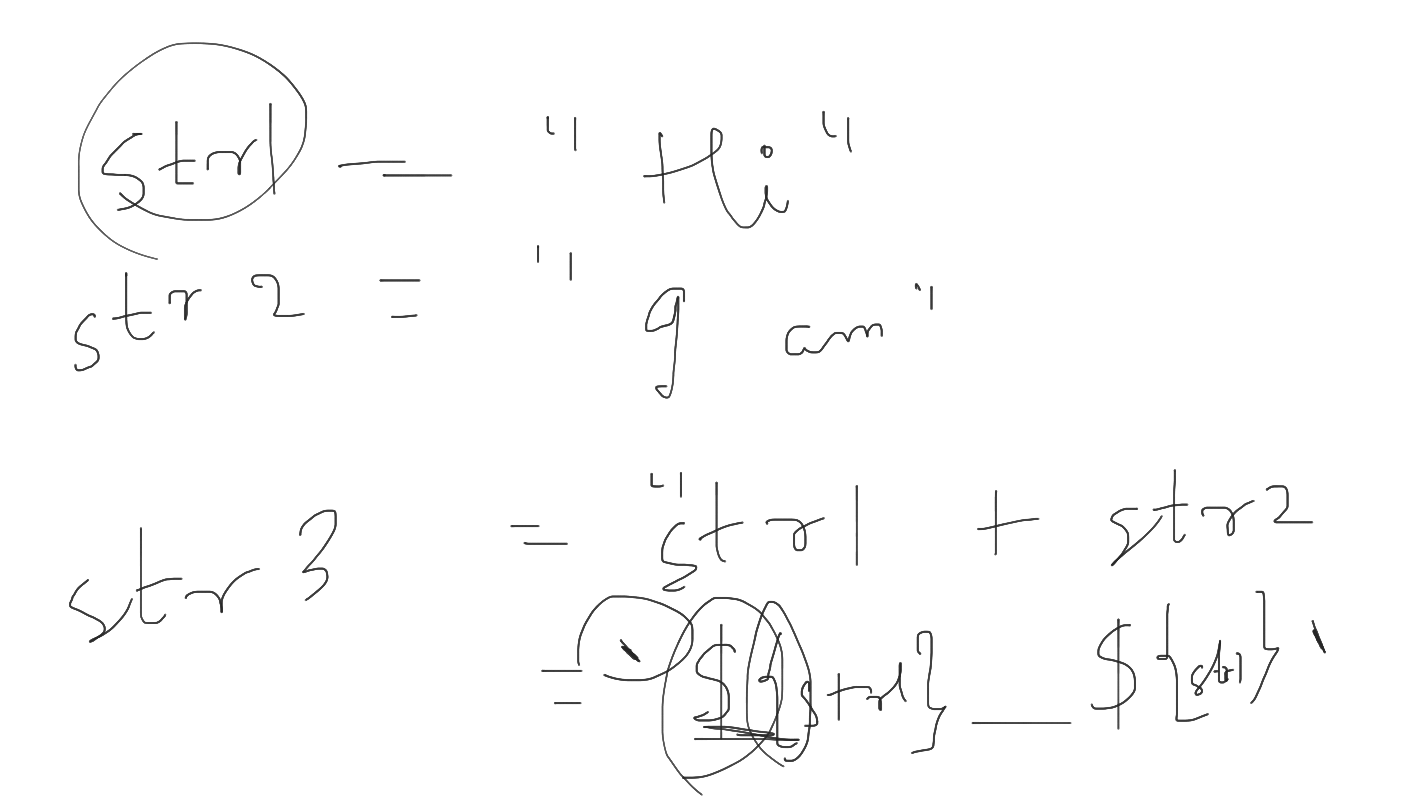 str1 = "Hi"
str2 = "g am"
str3 = "str1 + str2
= `${str1} _ ${str1}`